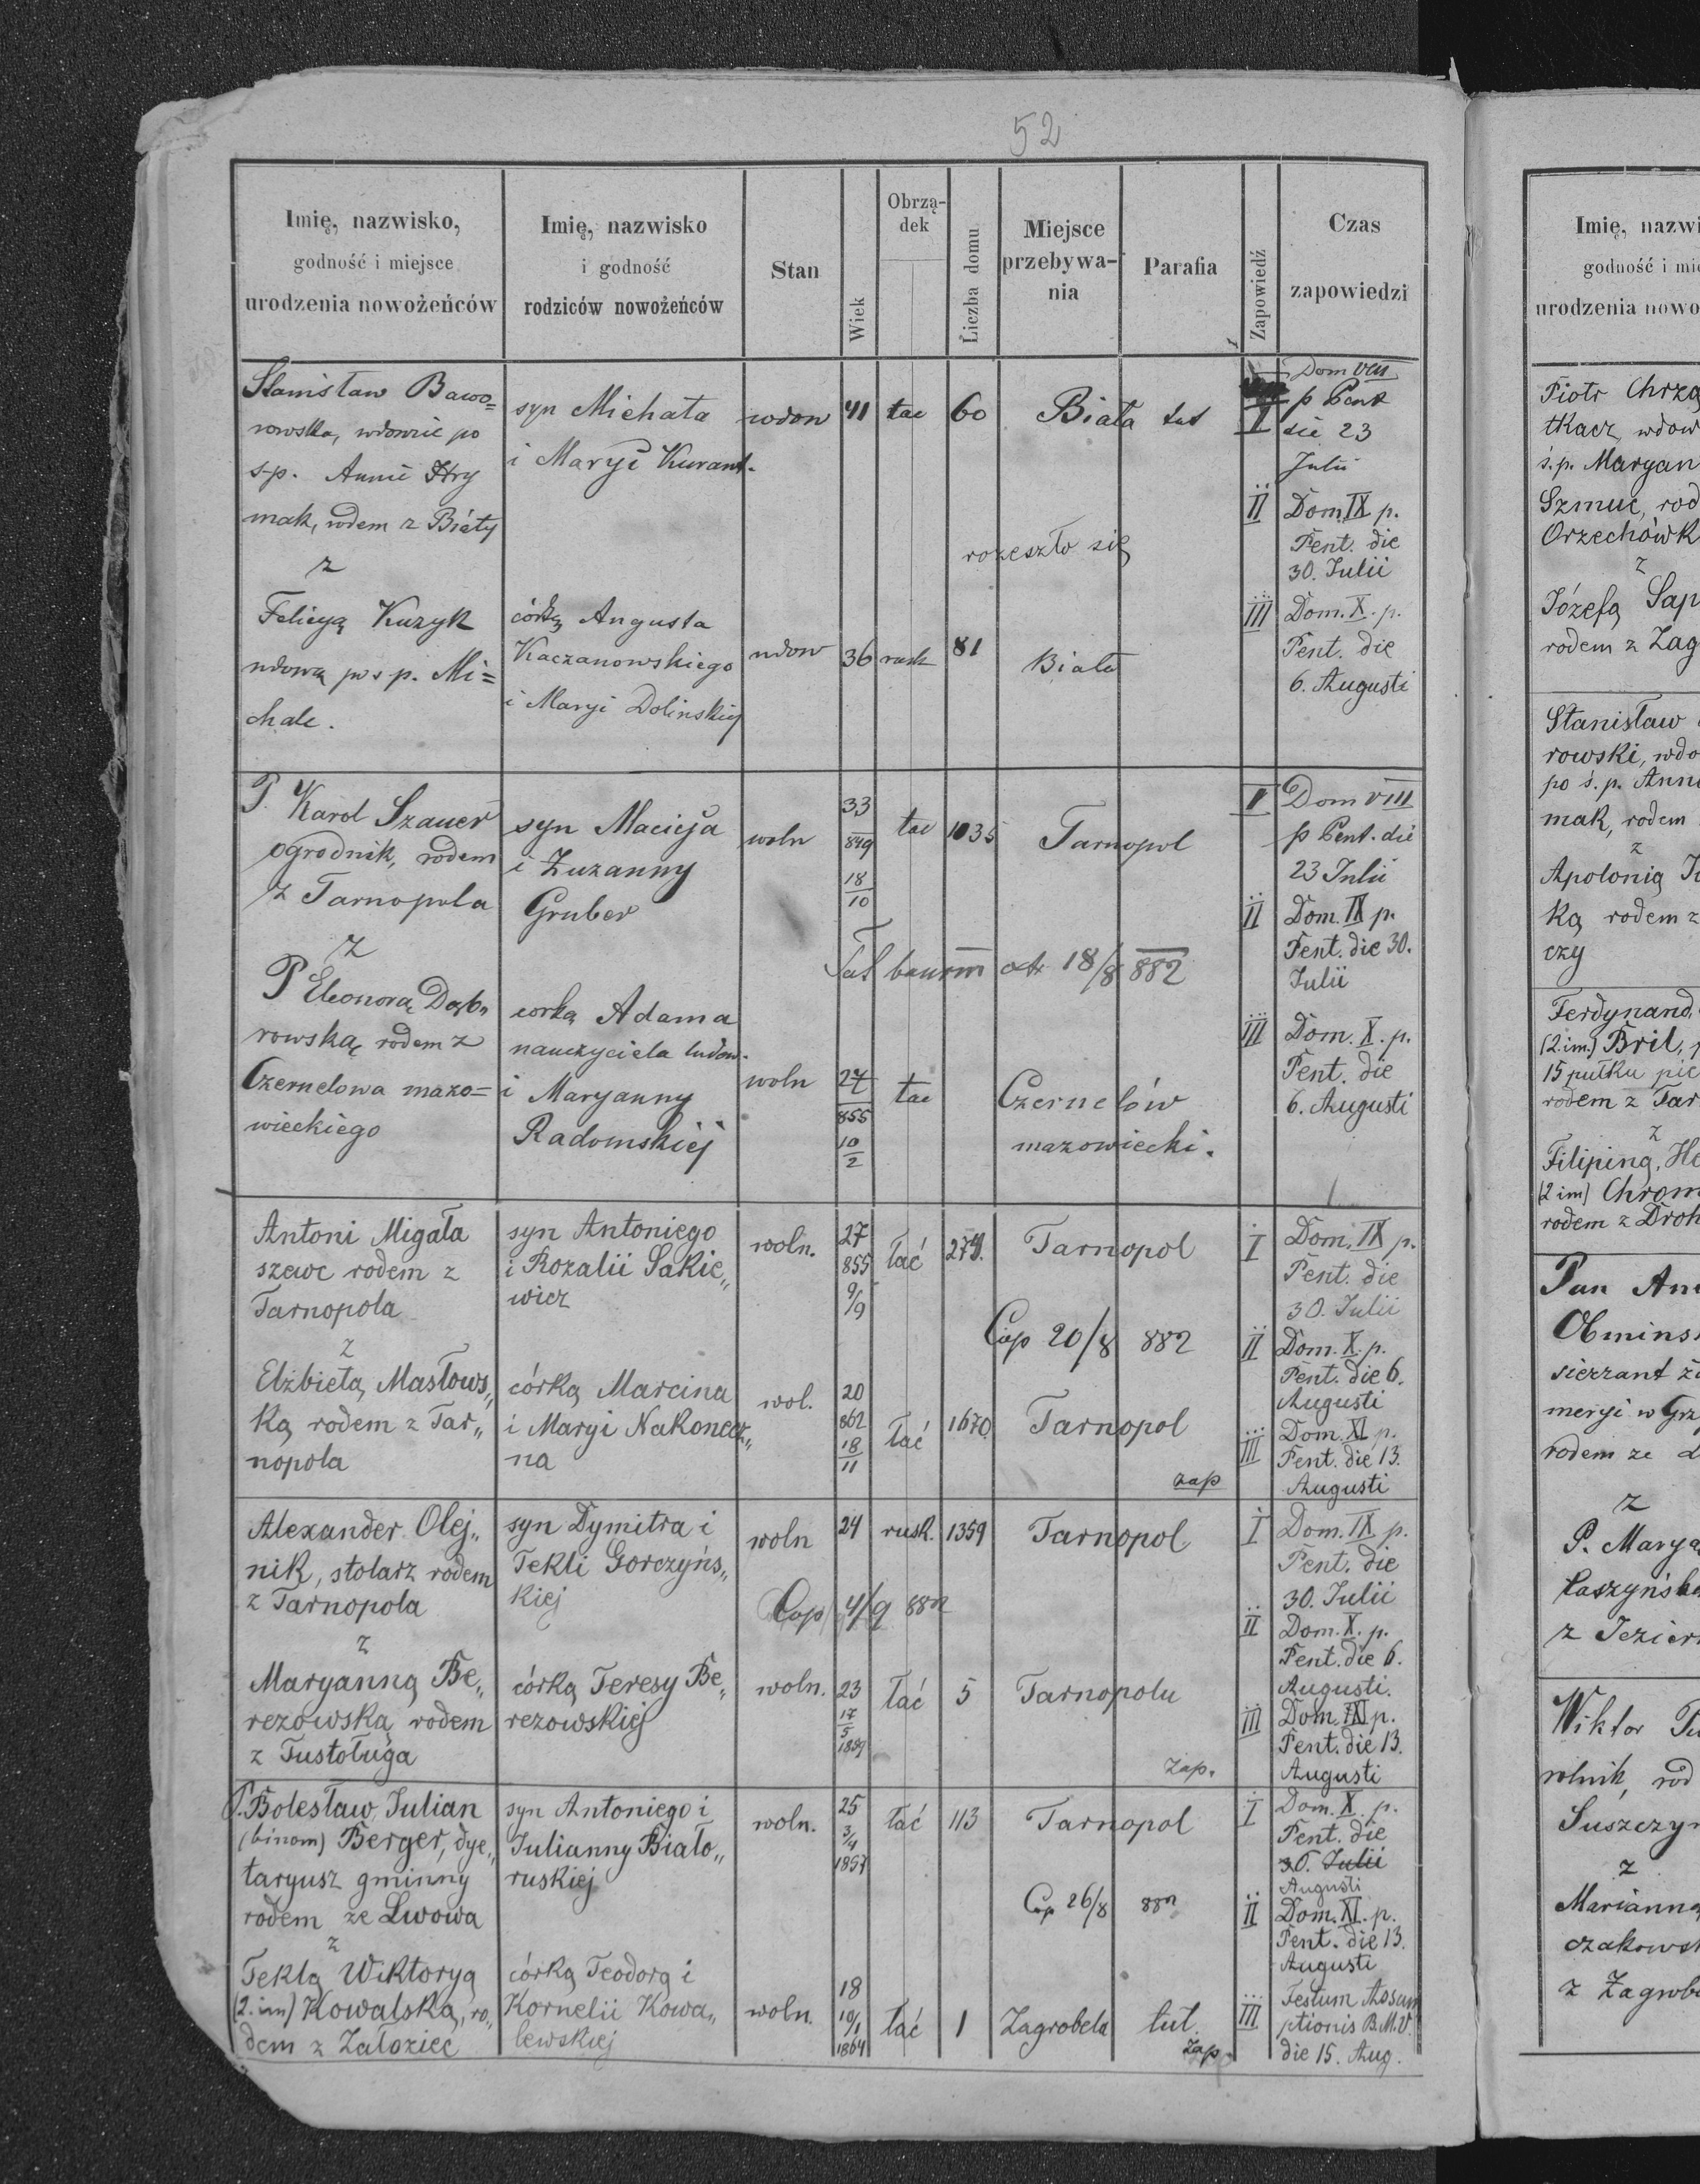 52
Imię, nazwisko,
godność i miejsce
urodzenia nowożeńców
Imię, nazwisko
i godność
rodziców nowożeńców
Stan
Wiek
Obrzą-
dek
Liczba domu
Miejsce
przebywa-
nia
Parafia
Zapowiedź
Czas
zapowiedzi
Stanisław Bawo=
rowski, wdowiec po
s.p. Annie Hry
mak, rodem z Biały
z
Felicyą Kuzyk
wdową po s.p. Mi=
chale.
syn Michała
i Maryi Kurant.
córką Augusta
Kaczanowskiego
i Maryi Dolinskiej
wdow
41
łac
60
Biała
tut
rozeszło się
wdow
36
rusk
81
Biała
I
Dom VIII
p Pent
die 23
Julii
II
Dom. IX p.
Pent. die
30. Julii
III
Dom. X. p.
Pent. die
6. Augusti
P. Karol Szauer
ogrodnik, rodem
z Tarnopola
z
P Eleonorą Dąb„
rowską rodem z
Czernelowa mazo=
wieckiego
syn Macieja
i Zuzanny
Gruber
corką Adama
nauczyciela ludow.
i Maryanny
Radomskiej
woln
33
849
18
10
łac
1035
Tarnopol
18/8 882
woln
27
855
10
2
łac
Czernelów
mazowiecki.
I
Dom VIII
p Pent. die
23 Julii
II
Dom. IX p.
Pent. die 30.
Julii
III
Dom. X. p.
Pent. die
6. Augusti
Antoni Migała
szewc rodem z
Tarnopola
z
Elżbietą Masłows„
ką rodem z Tar„
nopola
syn Antoniego
i Rozalii Sakie„
wicz
córką Marcina
i Maryi Nakonecz„
na
woln.
27
855
9/9
łać
279.
Tarnopol
Cop 20/8 882
wol.
20
862
18
11
łać
1670.
Tarnopol
zap
I
Dom. IX p.
Pent. die
30. Julii
II
Dom. X. p.
Pent. die 6.
Augusti
III
Dom. XI p.
Pent. die 13.
Augusti
Alexander Olej„
nik, stolarz rodem
z Tarnopola
z
Maryanną Be„
rezowską rodem
z Tustoługa
syn Dymitra i
Tekli Gorczyńs„
kiej
córką Teresy Be„
rezowskiej
woln
24
rusk.
1359
Tarnopol
Cop 4/9 882
woln.
23
17
5
1859
łać
5
Tarnopolu
zap.
I
Dom. IX p.
Pent. die
30. Julii
II
Dom. X. p.
Pent. die 6.
Augusti.
III
Dom. XI p.
Pent. die 13.
Augusti
P. Bolesław, Julian
(binom) Berger, dye„
taryusz gminny
rodem ze Lwowa
z
Teklą Wiktoryą
(2. im) Kowalską, ro„
dem z Załoziec
syn Antoniego i
Julianny Biało„
ruskiej
córką Teodorą i
Kornelii Kowa„
lewskiej
woln.
25
3/4
1857
łać
113
Tarnopol
Cop 26/8 882
woln.
18
10/1
1864
łać
1
Zagrobela
tut.
zap.
I
Dom. X. p.
Pent. die
30. Julii
Augusti
II
Dom. XI. p.
Pent. die 13.
Augusti
III
Festum Assum
ptionis B.M.V.
die 15. Aug.
Imię, nazwi
godność i mie
urodzenia nowo
Piotr Chrzą
tkacz, wdow
ś.p. Maryan
Szmuc, rod
Orzechówk
z
Józefą Sap
rodem z Zag
Stanisław
rowski, wdo
po ś.p. Anni
mak, rodem
z
Apolonią
ką rodem z
czy
Ferdynand,
(2.im.) Bril,
15 pułku pie
rodem z Tar
z
Filipiną, He
(2 im) Chrom
rodem z Droh
Pan An
Obmins
sierzant ża
meryi w Grz
rodem ze
z
P. Marya
Łaszyńsk
z Jezier
Wiktor
rolnik, rod
Suszczyn
z
Marianną
czakows
z Zagrobe